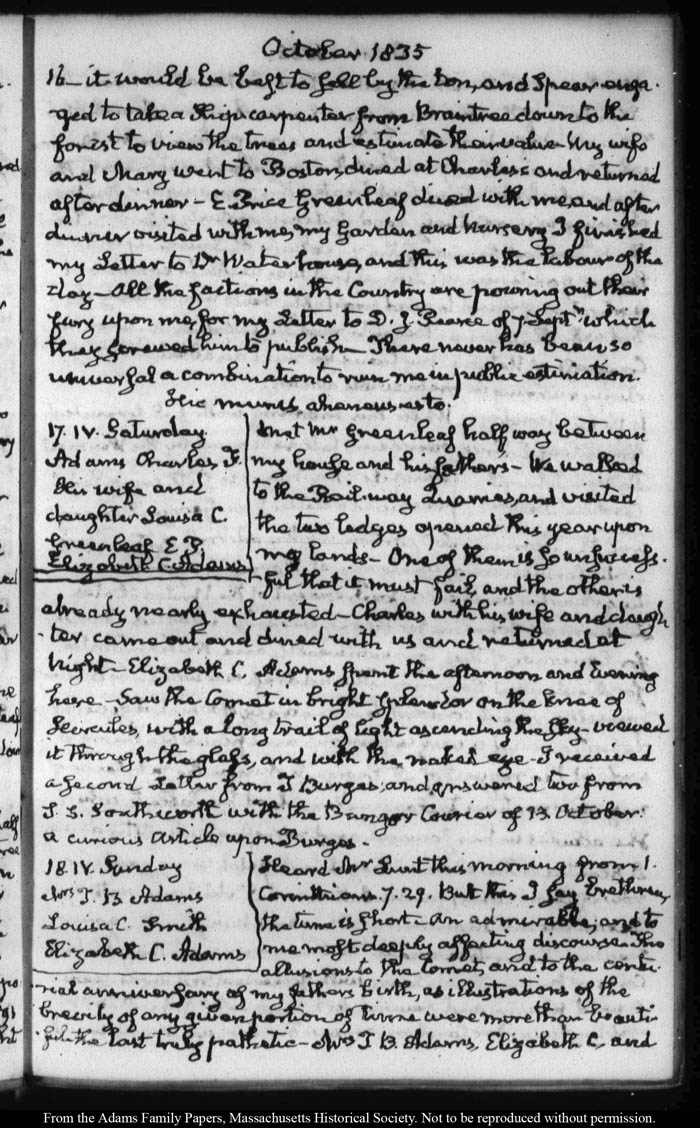 October 1835
16— it would be best to sell by the ton, and Spear enga-
ged to take a Ship carpenter from Braintree down to the
forest to view the trees and estimate their value— My wife
and Mary went to Boston, dined at Charles's and returned
after dinner— E Price Greenleaf dined with me, and after
dinner visited with me, my Garden and Nursery I finished
my Letter to Dr Waterhouse, and this was the labour of the
day— All the factions in the Country are pouring out their
fury upon me, for my Letter to D. J. Pearce of 7. Septr. which
they screwed him to publish— There never has been so
universal a combination to ruin me in public estimation.
Hic murus aheneus esto.
17. IV. Saturday.
Adams Charles F.
His wife and
daughter Louisa C.
Greenleaf E P
Elizabeth C. Adams
Met Mr Greenleaf half way between
my house and his father's— We walked
to the Rail-way Quarries, and visited
the two ledges opened this year upon
my lands— One of them is so unsuccess-
ful that it must fail, and the other is
already nearly exhausted— Charles with his wife and daugh-
ter came out and dined with us and returned at
Night— Elizabeth C. Adams spent the afternoon and Evening
here— Saw the Comet in bright splendor on the knee of
Hercules, with a long trail of light ascending the sky— viewed
it through the glass, and with the naked eye— I received
a second Letter from T Burges, and answered two from
S. S. Southworth with the Bangor Courier of 13 October:
a curious Article upon Burges—
18. IV. Sunday
Mrs T. B Adams
Louisa C. Smith
Elizabeth C. Adams
Heard Mr Lunt this morning from 1.
Corinthians. 7. 29. But this I say Brethren,
the time is short— An admirable, and to
me most deeply affecting discourse. The
allusions to the Comet, and to the cente-
nial anniversary of my father's birth, as illustrations of the
brevity of any given portion of time were more than beauti-
ful— the last truly pathetic— Mrs T B. Adams, Elizabeth C, and
From the Adams Family Papers, Massachusetts Historical Society. Not to be reproduced without permission.